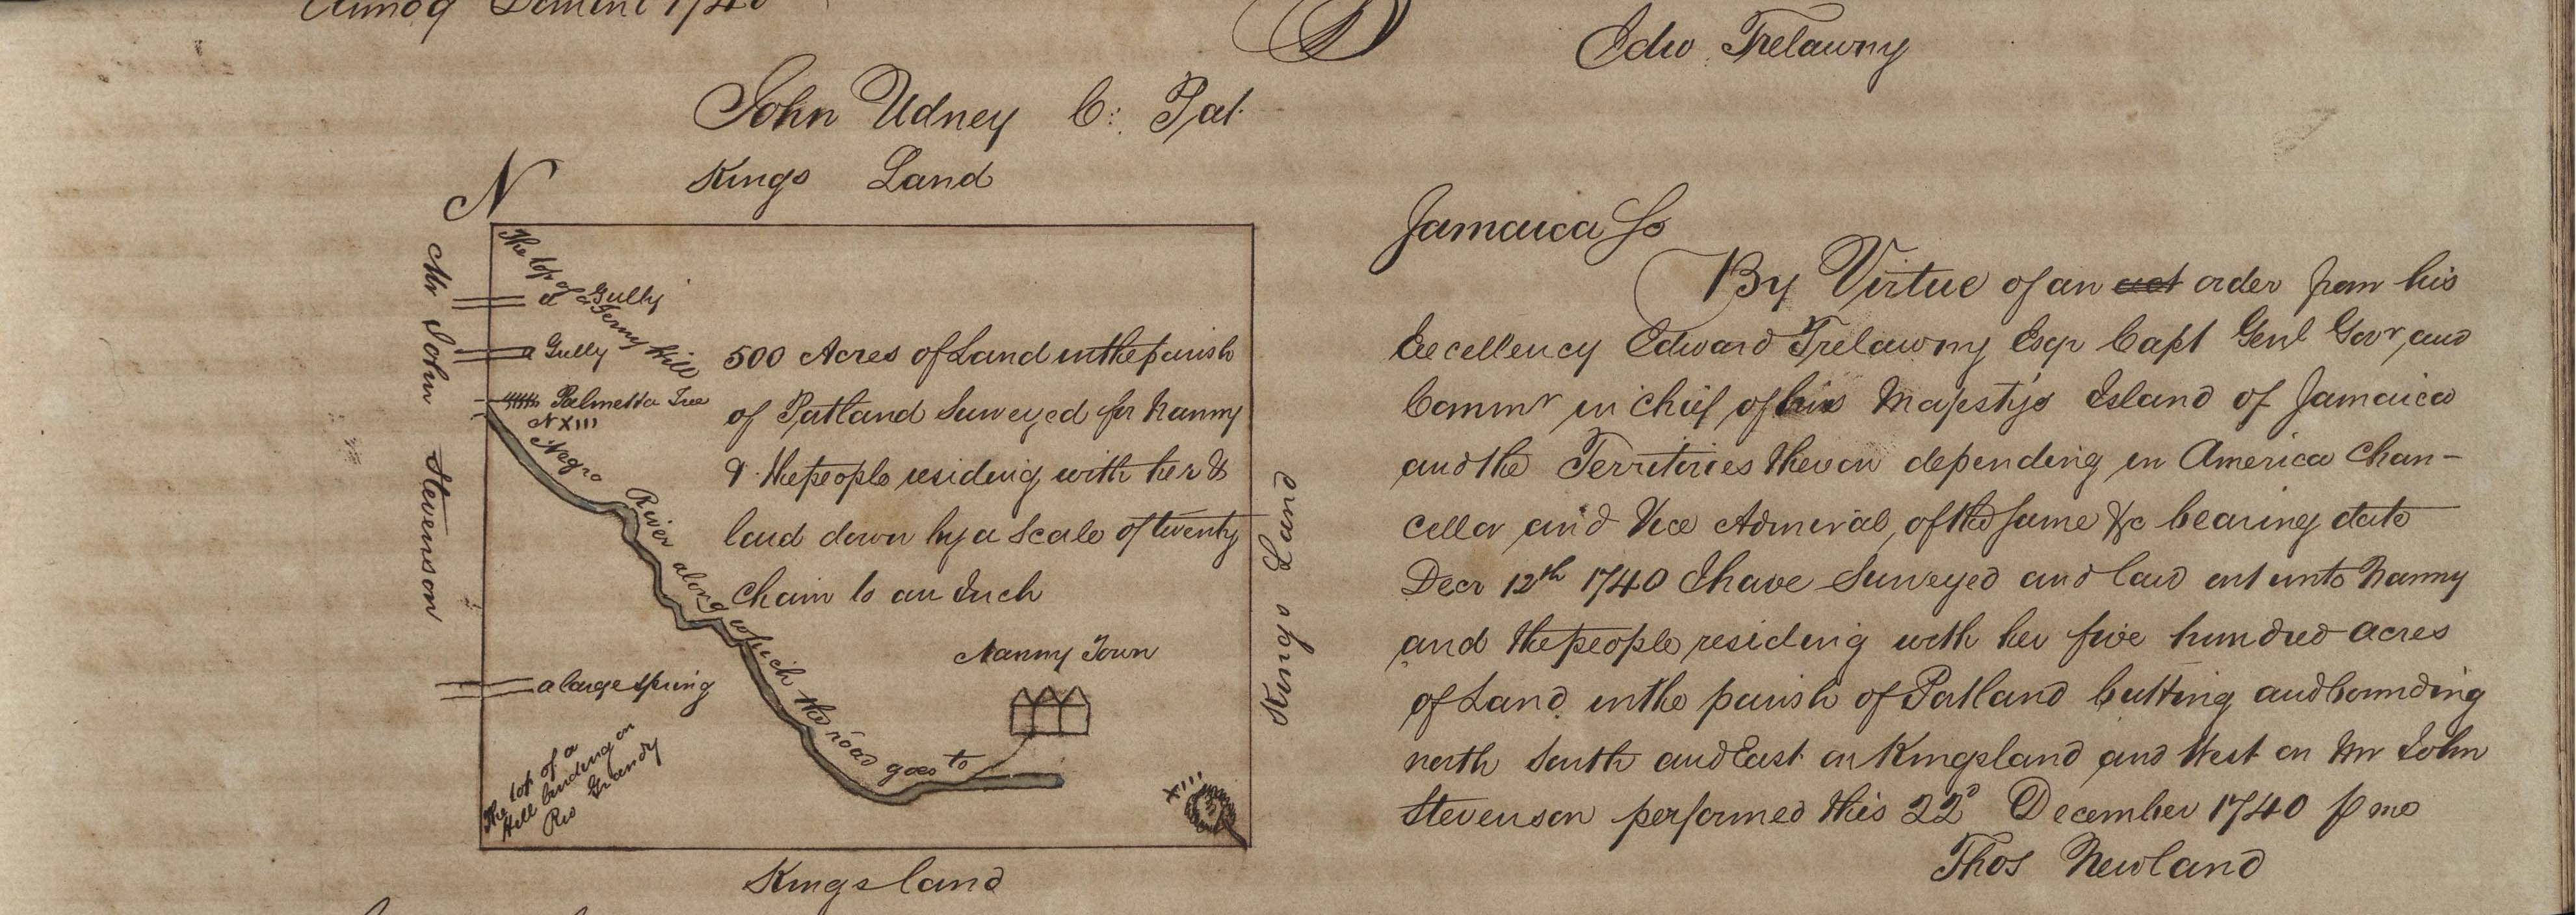 Annoq Domini 1740
Edw. Trelawny
John Udney C: Pat.
Kings Land
N
Mr John Stevenson
The top of a Ferny Hill
a Gully
a Gully
Palmetta Tree
N XIII
Negro River along which the road goes to
500 Acres of Land in the parish
of Portland Surveyed for Nanny
& the people residing with her &
laid down by a Scale of twenty
Chain to an Inch
Nanny Town
a large spring
The top of a
Hill binding on
Rio Grandy
XIII
Kings Land
Kingsland
Jamaica Ss
By Virtue of an act order from his
Excellency Edward Trelawny Esqr Capt Genl Govr, and
Commr in Chief of his Majestys Island of Jamaica
and the Territories thereon depending in America Chan-
cellor and Vice Admiral, of the Same &c bearing date
Decr 12th 1740 I have Surveyed and laid out unto Nanny
and the people residing with her five hundred acres
of Land in the parish of Portland butting and bounding
north South and East on Kingsland and West on Mr John
Stevenson performed this 22d December 1740 p me
Thos Newland